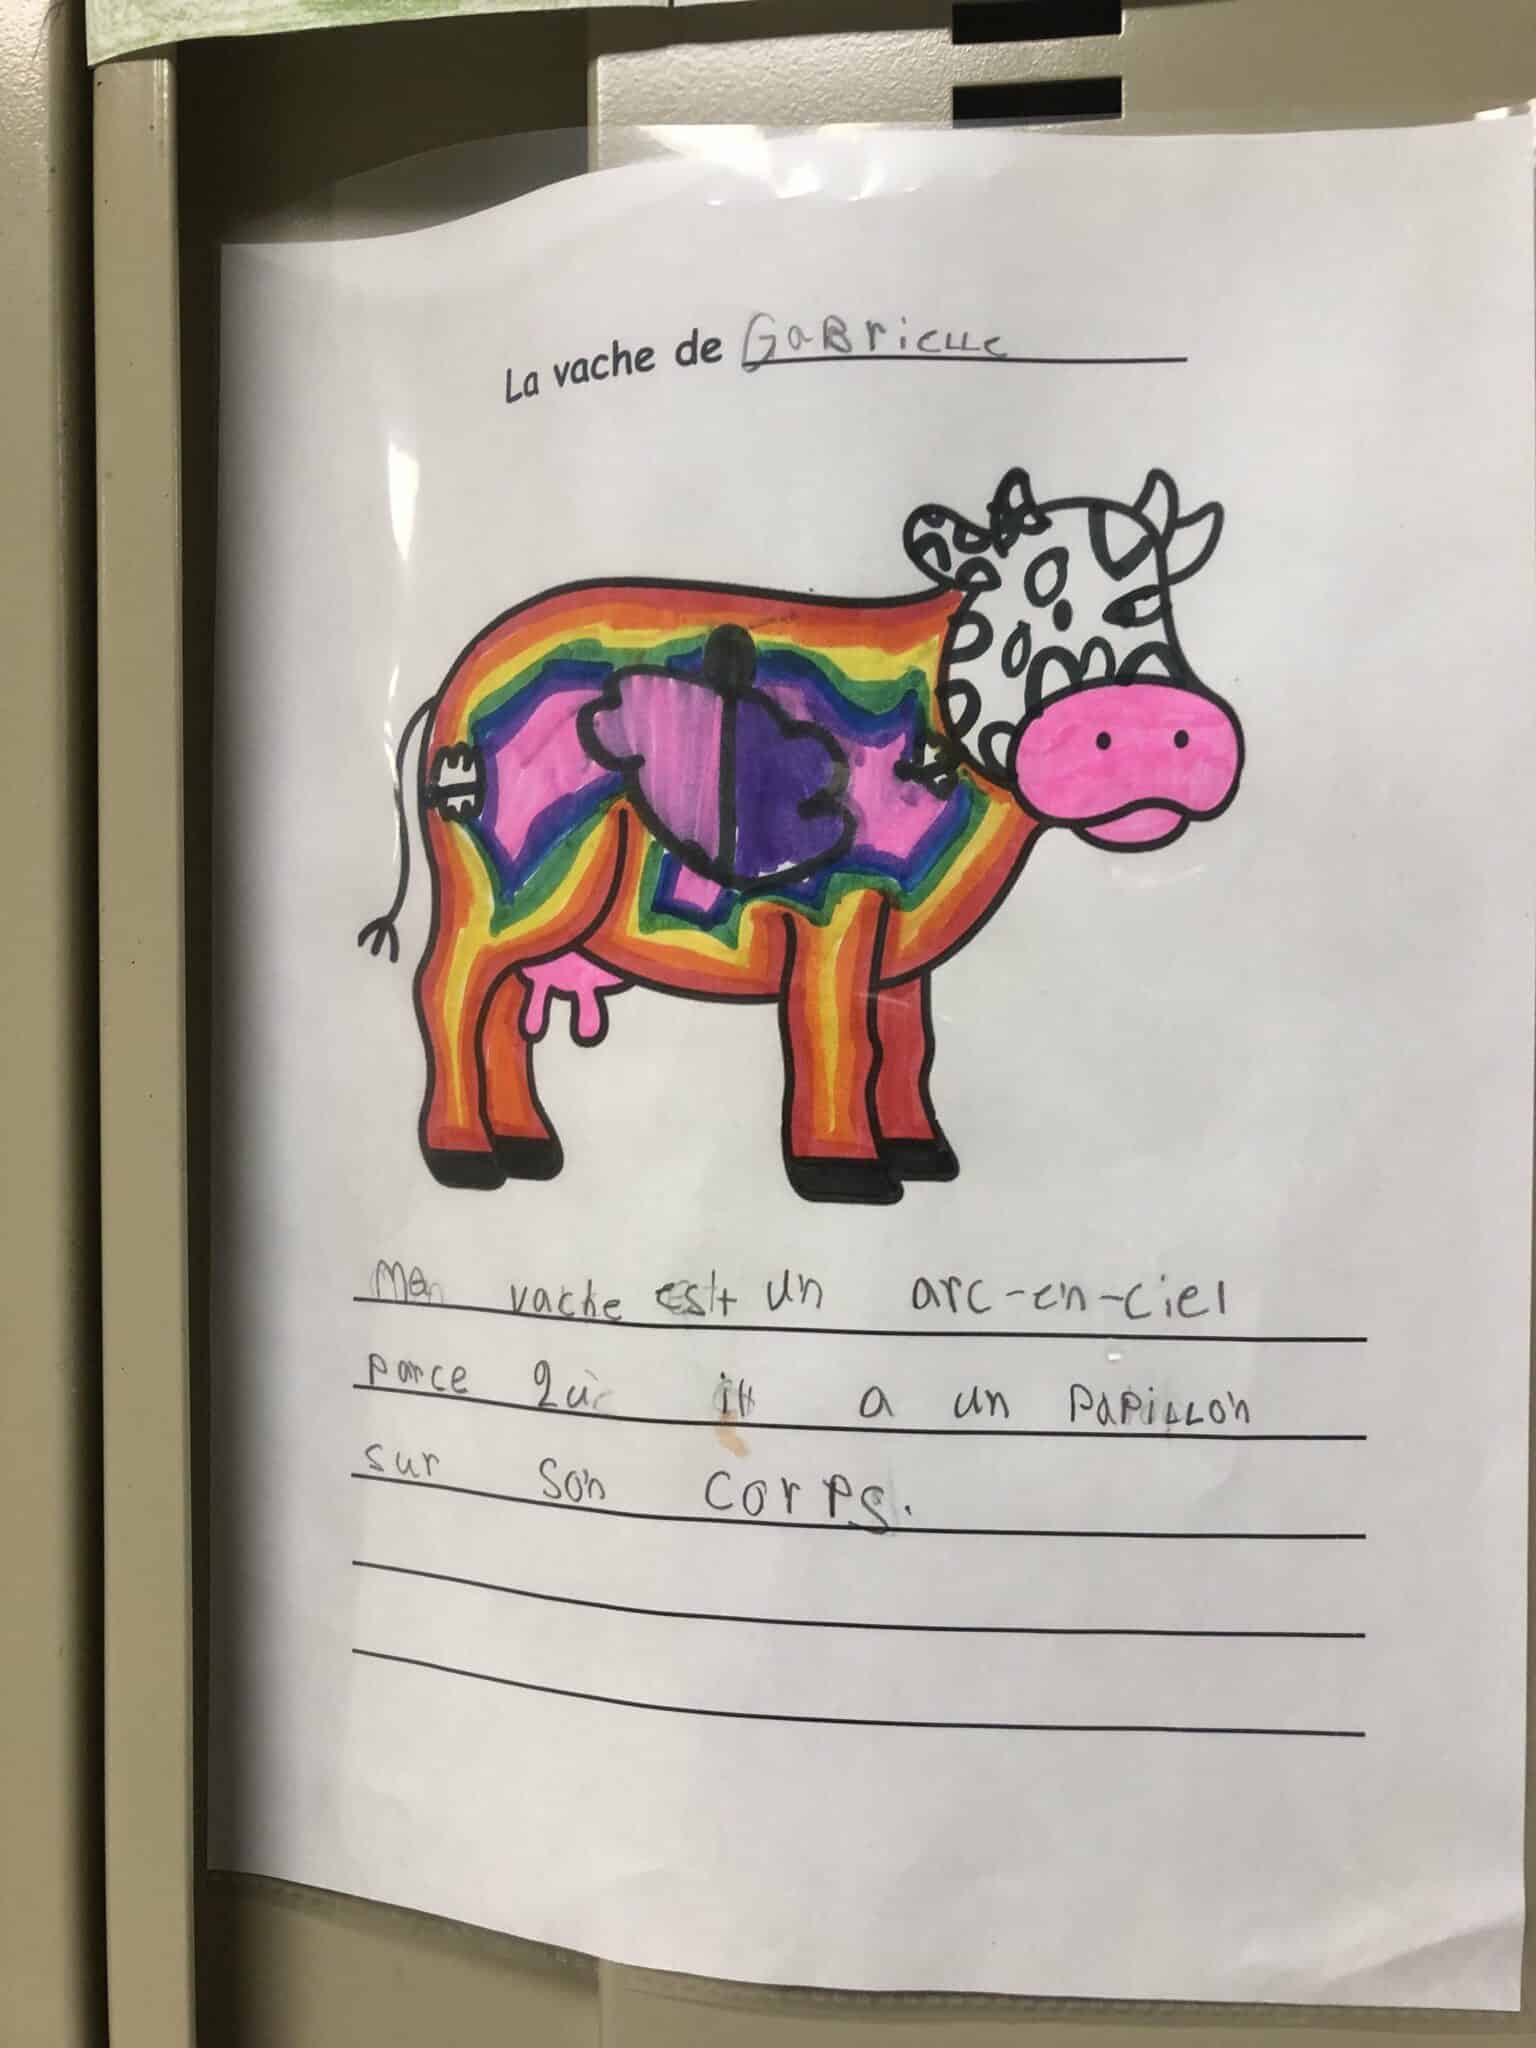 La vache de GaBrielle
Mon vache est un arc-en-ciel
parce que il a un papillon
sur son corps.